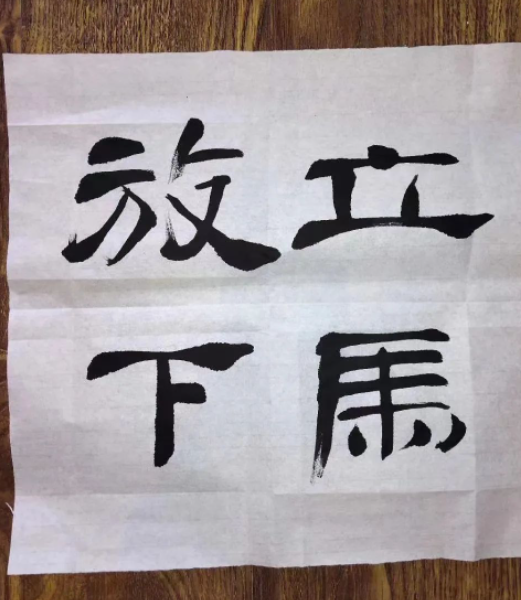 立馬
放下